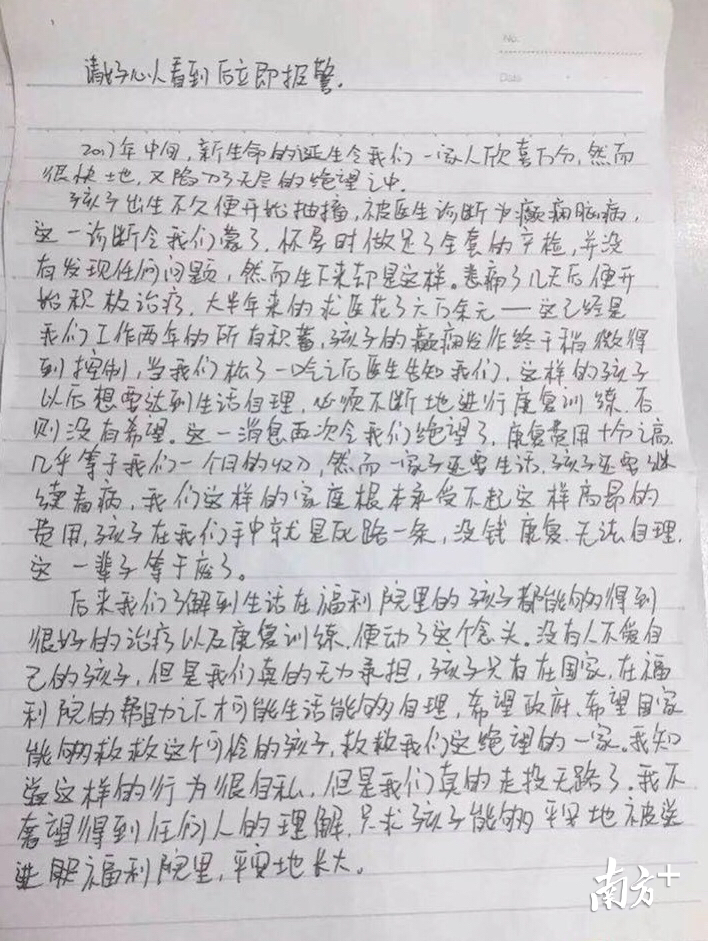 No.
Date
请好心人看到后立即报警.
2017年中间,新生命的诞生令我们一家人欣喜万分,然而
很快地,又陷入了无尽的绝望之中.
孩子出生不久便开始抽搐,被医生诊断为癫痫脑病,
这一诊断令我们蒙了,怀孕时做足了全套的产检,并没
有发现任何问题,然而生下来却是这样。悲痛了几天后便开
始积极治疗,大半年来的求医花了六万余元——这已经是
我们工作两年的所有积蓄,孩子的癫痫发作终于稍微得
到控制,当我们松了一口气之后医生告知我们,这样的孩子
以后想要达到生活自理,必须不断地进行康复训练,否
则没有希望。这一消息再次令我们绝望了,康复费用十分之高,
几乎等于我们一个月的收入,然而一家子还要生活,孩子还要继
续看病,我们这样的家庭根本承受不起这样高昂的
费用,孩子在我们手中就是死路一条,没钱康复.无法自理,
这一辈子等于废了。
后来我们了解到生活在福利院里的孩子都能够得到
很好的治疗以及康复训练,便动了这个念头。没有人不爱自
己的孩子,但是我们真的无力承担,孩子只有在国家,在福
利院的帮助之下才可能生活能够自理,希望政府、希望国家
能够救救这个可怜的孩子,救救我们这绝望的一家。我知
道这样的行为很自私,但是我们真的走投无路了。我不
奢望得到任何人的理解,只求孩子能够平安地被送
进福利院里,平安地长大。
南方+